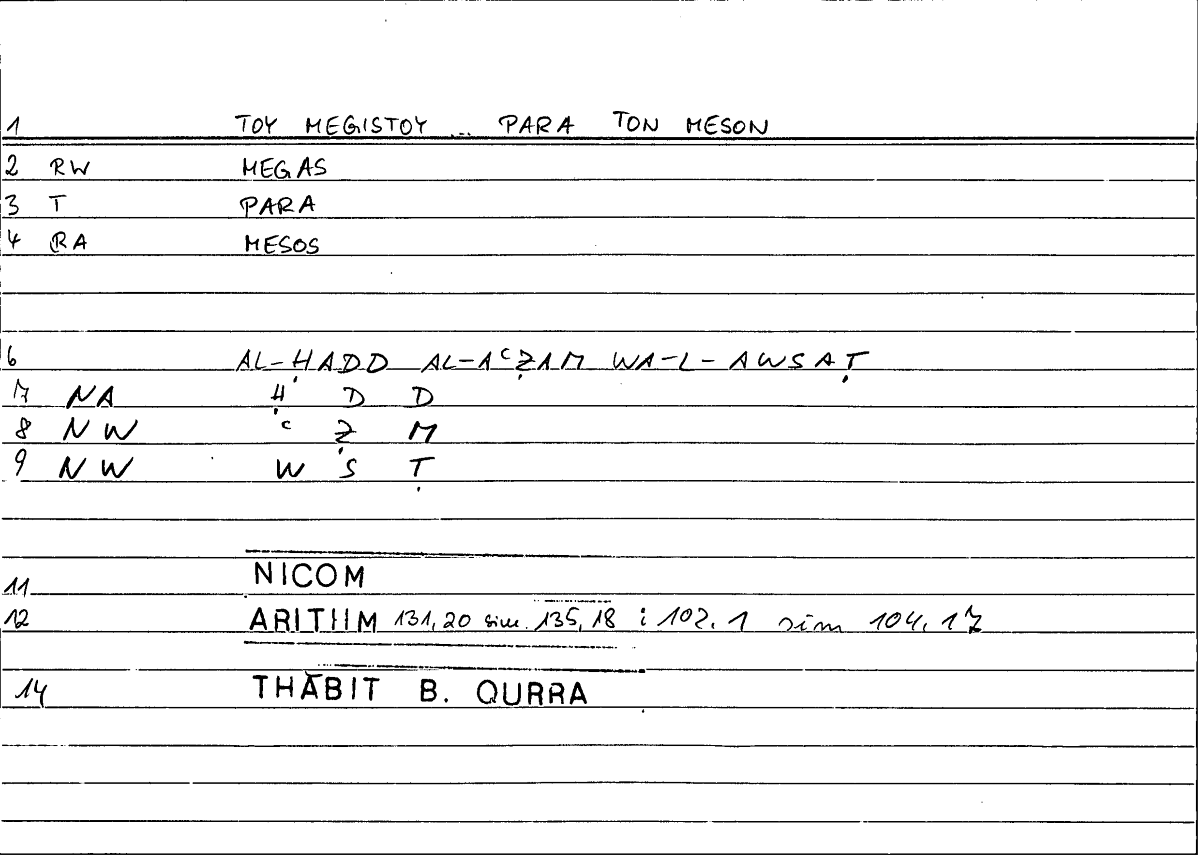 1 TOY MEGISTOY ... PARA TON MESON
2 RW MEGAS
3 T PARA
4 RA MESOS
6 AL-ḤADD AL-AᶜẒAM WA-L-AWSAṬ
7 NA Ḥ D D
8 NW ᶜ Ẓ M
9 NW W S Ṭ
11 NICOM
12 ARITHM 131,20 sim. 135,18 ; 102.1 sim 104.17
14 THĀBIT B. QURRA